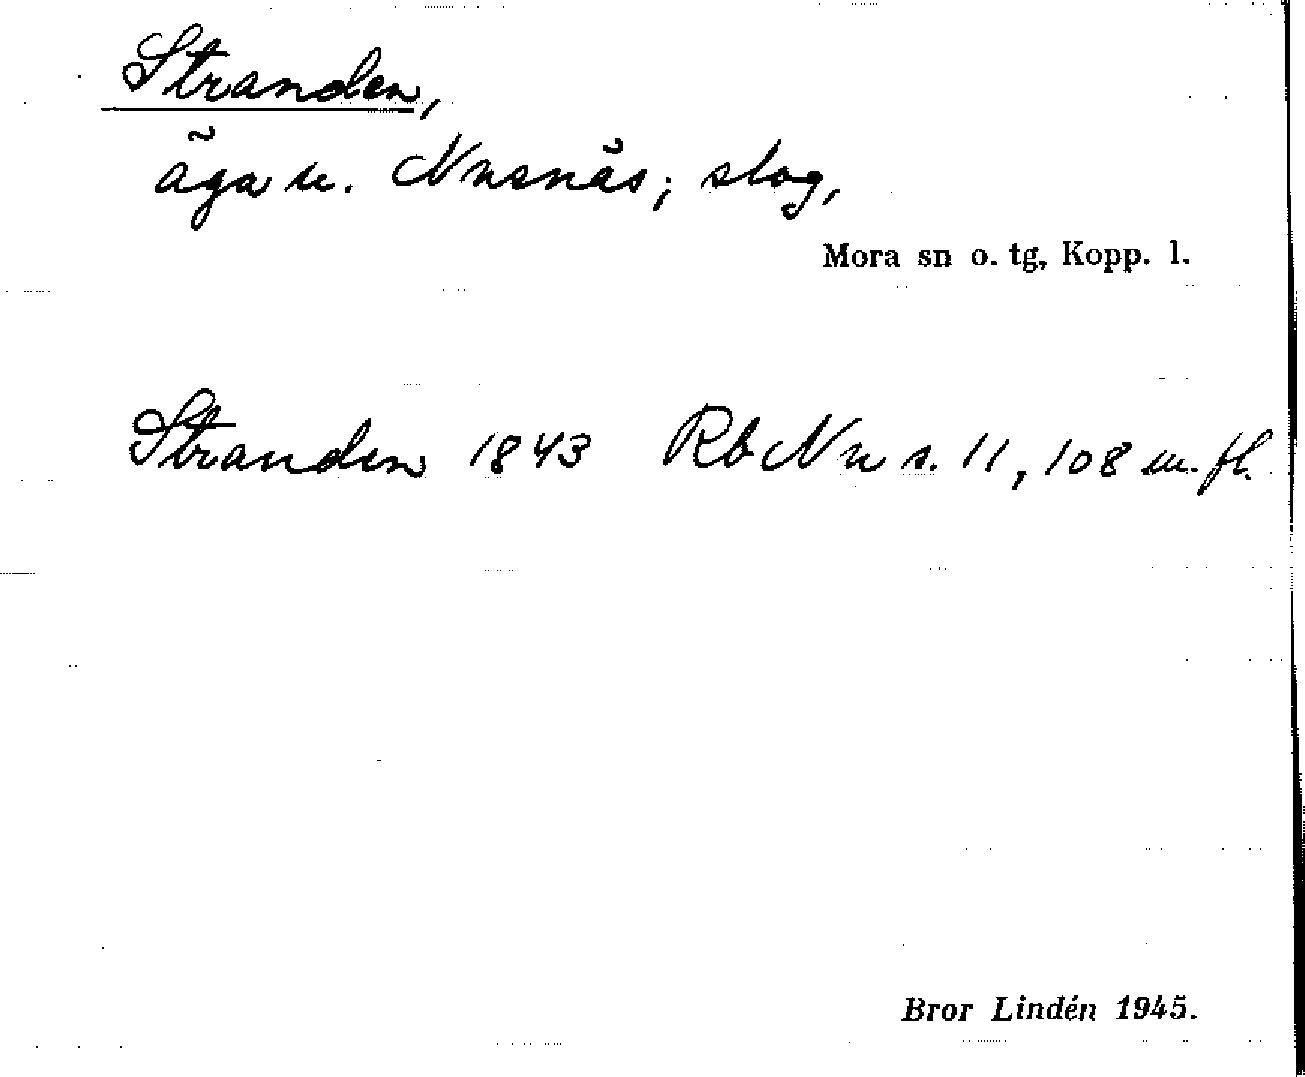 Stranden,
äga u. Nusnäs; slog,
Mora sn o. tg, Kopp. l.
Stranden 1843 Rb Nu s. 11, 108 m. fl.
Bror Lindén 1945.